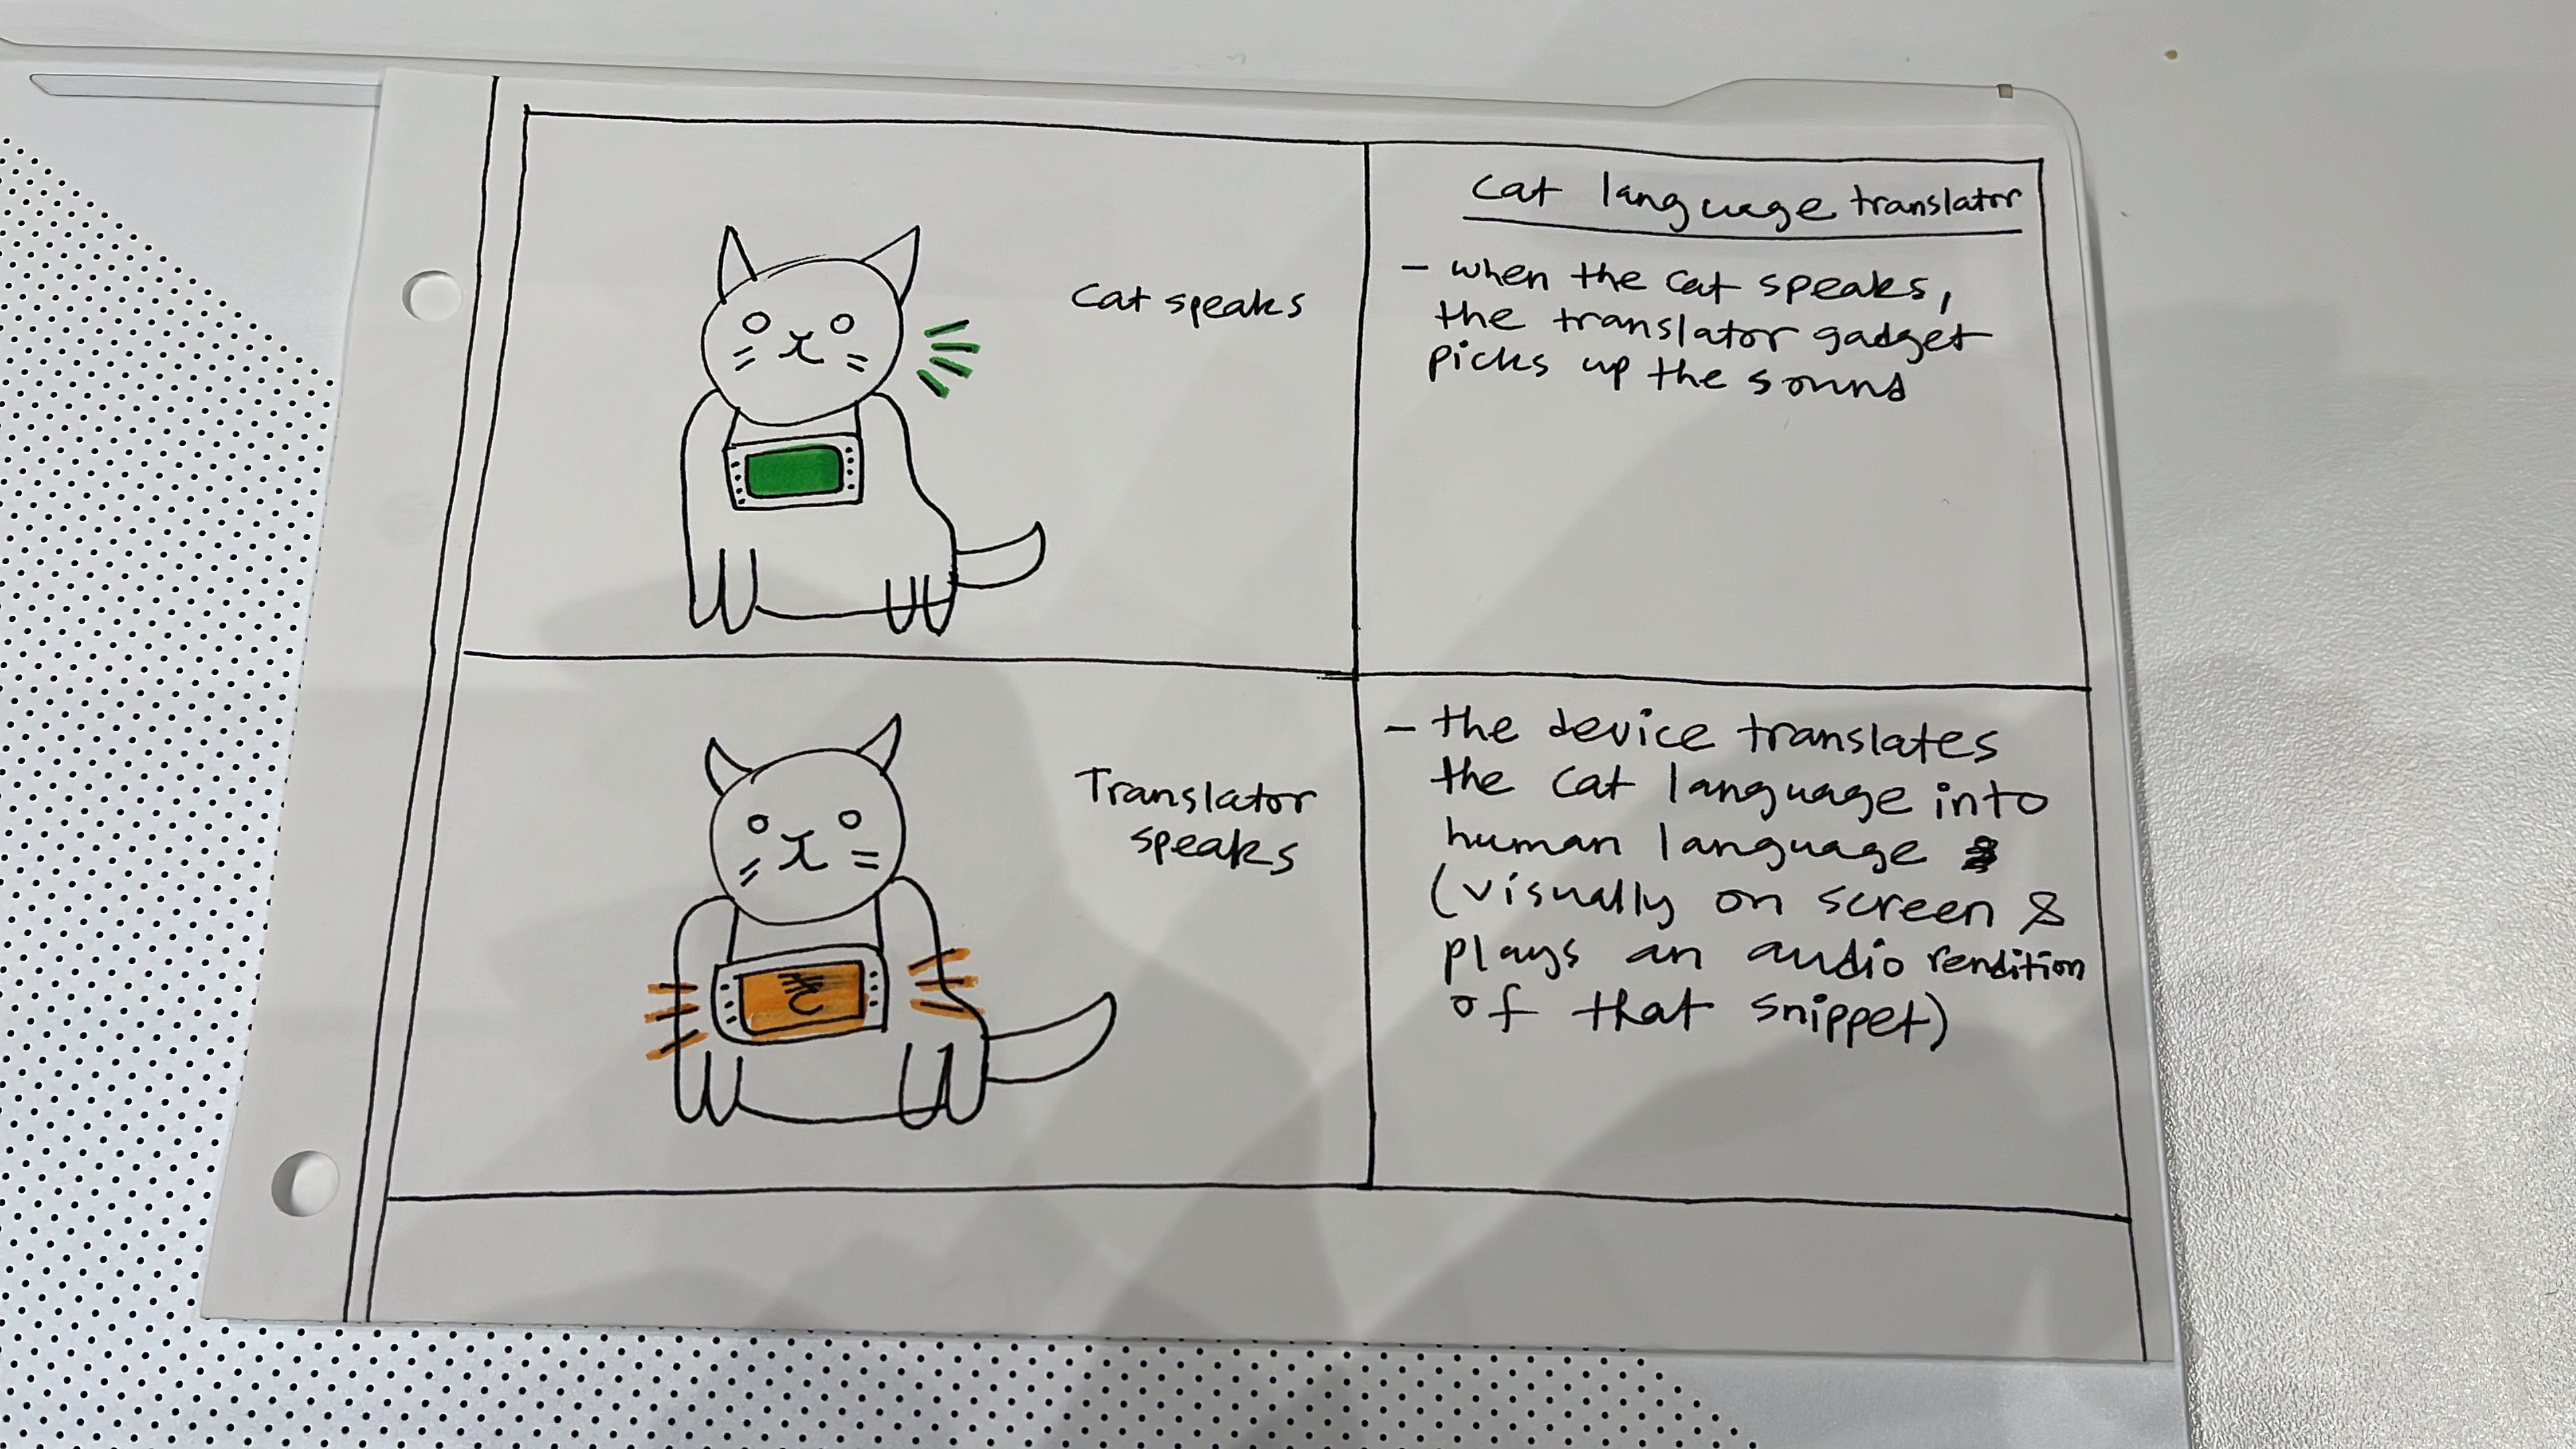 Cat language translator
Cat speaks
- when the cat speaks,
the translator gadget
picks up the sound
Translator
speaks
- the device translates
the cat language into
human language
(visually on screen &
plays an audio rendition
of that snippet)